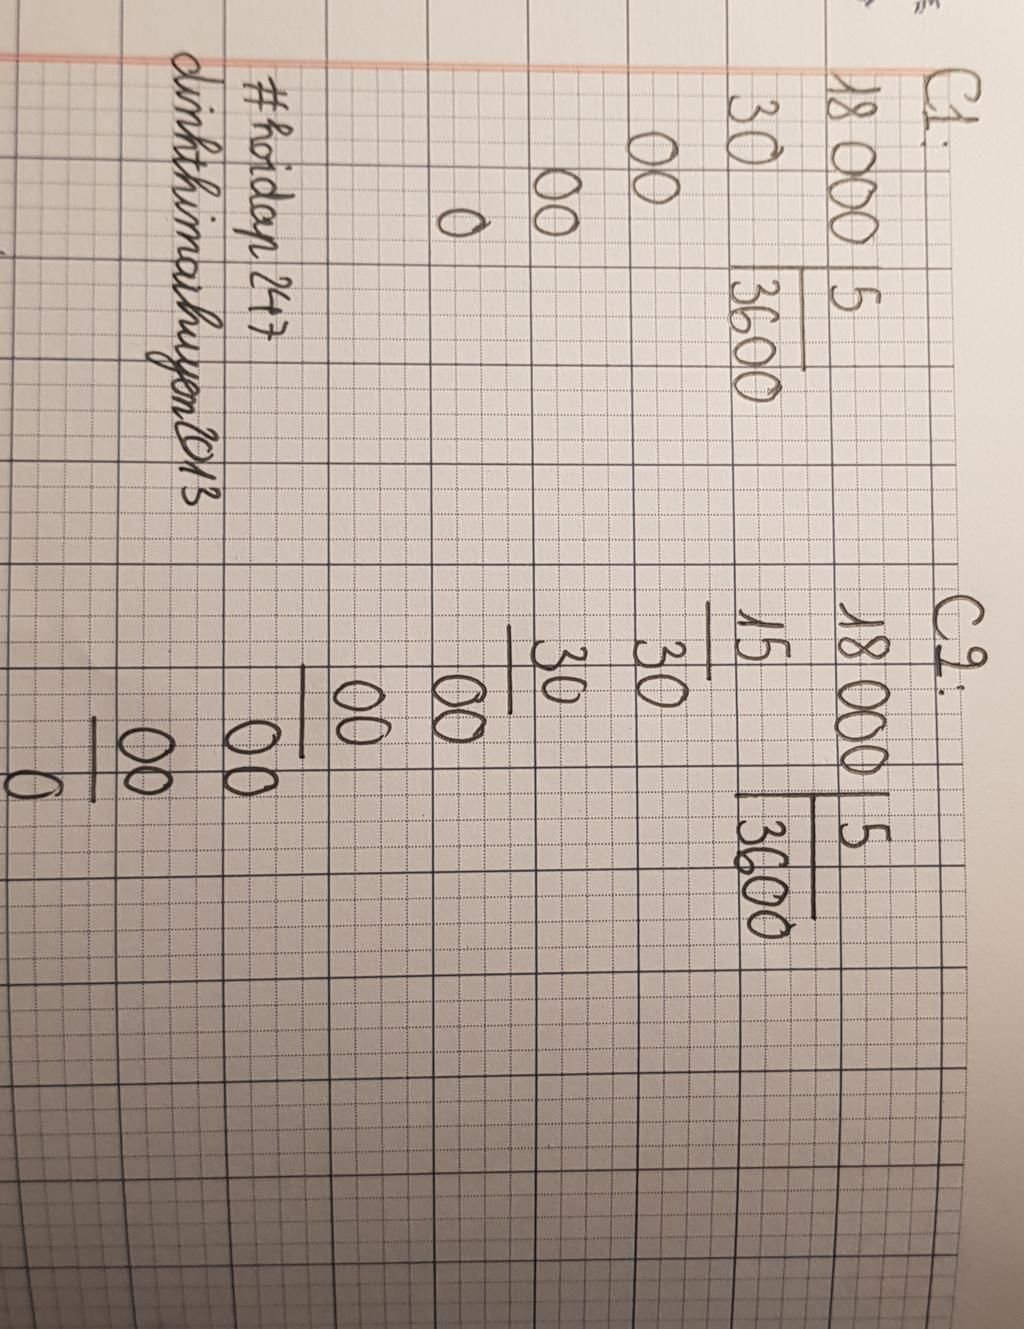 C1:
18 000 5
30 3600
00
00
0
#hoidap247
dinhthimaihuyen2013
C2:
18 000 5
15 3600
30
30
00
00
00
00
0